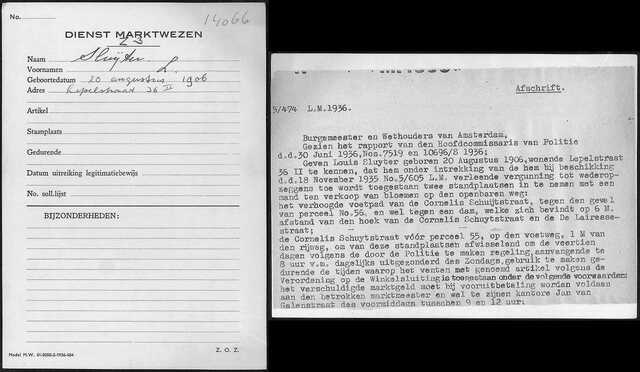 No.
14066
DIENST MARKTWEZEN
23
Naam Sluijter
Voornamen L.
Geboortedatum 20 augustus 1906
Adres Lepelstraat 36 II
Artikel
Staanplaats
Gedurende
Datum uitreiking legitimatiebewijs
No. soll.lijst
BIJZONDERHEDEN:
Z. O. Z.
Afschrift.
5/474 L.M.1936.
Burgemeester en Wethouders van Amsterdam,
Gezien het rapport van den Hoofdcommissaris van Politie
d.d.30 Juni 1936,Nos.7519 en 10696/8 1936;
Geven Louis Sluyter geboren 20 Augustus 1906,wonende Lepelstraat
36 II te kennen, dat hem onder intrekking van de hem bij beschikking
d.d.18 November 1935 No.5/605 L.M. verleende vergunning tot wederop-
zeggens toe wordt toegestaan twee standplaatsen in te nemen met een
mand ten verkoop van bloemen op den openbaren weg:
het verhoogde voetpad van de Cornelis Schuijtstraat, tegen den gevel
van perceel No.56. en wel tegen een dam, welke zich bevindt op 6 M.
afstand van den hoek van de Cornelis Schuytstraat en de De Lairesse-
straat;
de Cornelis Schuytstraat vóór perceel 55, op den voetweg, 1 M van
den rijweg, om van deze standplaatsen afwisselend om de veertien
dagen volgens de door de Politie te maken regeling,aanvangende te
8 uur v.m. dagelijks uitgezonderd des Zondags,gebruik te maken ge-
durende de tijden waarop het venten met genoemd artikel volgens de
Verordening op de Winkelsluiting is toegestaan onder de volgende voorwaarden:
het verschuldigde marktgeld moet bij vooruitbetaling worden voldaan
aan den betrokken marktmeester en wel te zijnen kantore Jan van
Galenstraat des voormiddags tusschen 9 en 12 uur;